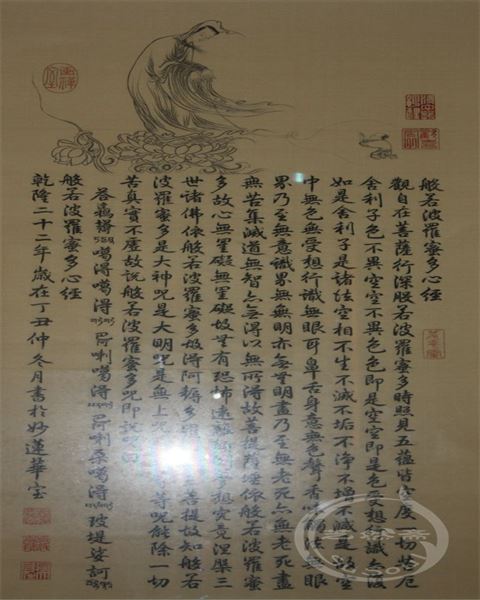 般若波羅蜜多心經
觀自在菩薩行深般若波羅蜜多時照見五蘊皆空度一切苦厄
舍利子色不異空空不異色色即是空空即是色受想行識亦復
如是舍利子是諸法空相不生不滅不垢不淨不增不滅是故空
中無色無受想行識無眼耳鼻舌身意無色聲香味觸法無眼
界乃至無意識界無無明亦無無明盡乃至無老死亦無老死盡
無苦集滅道無智亦無得以無所得故菩提薩埵依般若波羅蜜
多故心無罣礙無罣礙故無有恐怖遠離顛倒夢想究竟涅槃三
世諸佛依般若波羅蜜多故得阿耨多羅三菩提故知般若
波羅蜜多是大神咒是大明咒是無上咒等咒能除一切
苦真實不虛故說般若波羅蜜多咒即說咒曰
噶得噶得 喇噶得 喇桑噶得 堤娑訶
般若波羅蜜多心經
乾隆二十二年歲在丁丑仲冬月書於妙蓮華室